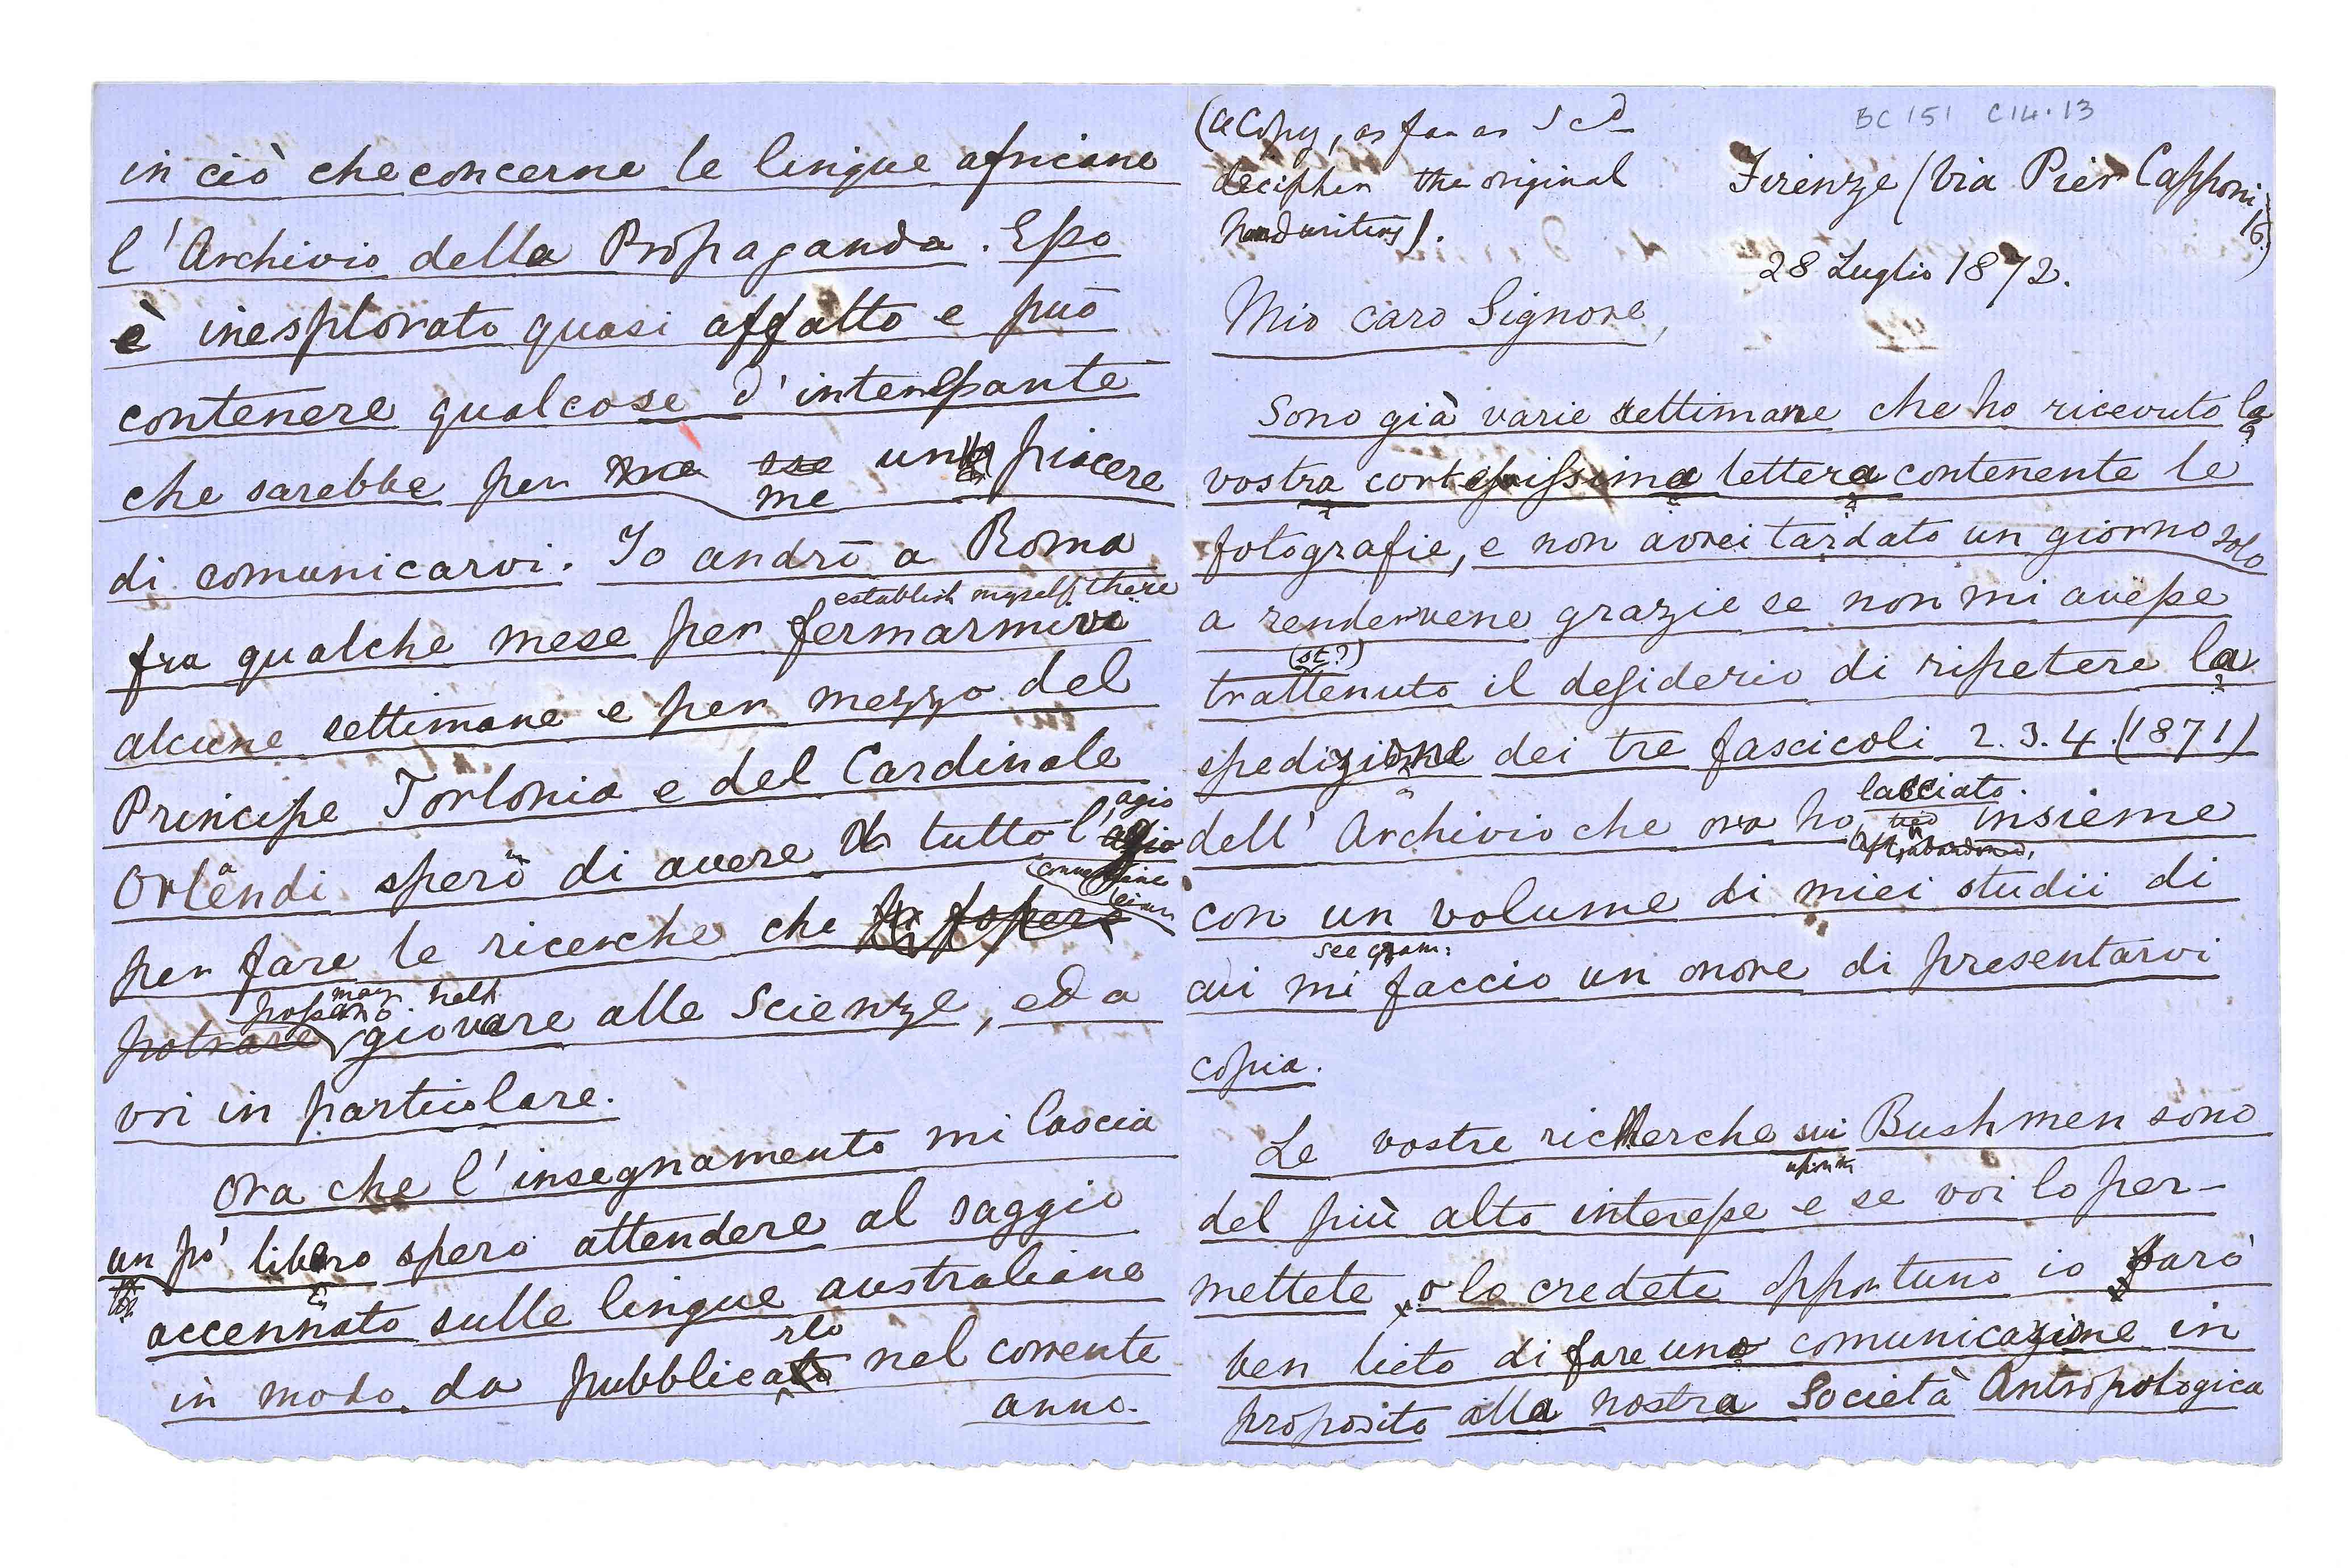 BC 151 C14.13
(a Copy, as far as I cd
decipher the original
handwriting).
Firenze (Via Pier Capponi
16.)
28 Luglio 1872.
Mio caro Signore,
Sono già varie settimane che ho ricevuto la
vostra cortesissima lettera contenente le
fotografie, e non avrei tardato un giorno solo
a rendervene grazie se non mi avesse
(st?)
trattenuto il desiderio di ripetere la
spedizione dei tre fascicoli 2.3.4.(1871)
lasciato
dell' Archivio che ora ho insieme
con un volume di miei studii di
see gram:
cui mi faccio un onore di presentarvi
copia.
Le vostre ricerche sui Bushmen sono
del più alto interesse e se voi lo per-
mettete, o lo credete opportuno io sarò
ben lieto di fare una comunicazione in
proposito alla nostra Società Antropologica
in ciò che concerne le lingue africane
l'Archivio della Propaganda. Esso
è inesplorato quasi affatto e può
contenere qualcose d'interessante
che sarebbe per me un piacere
me
di comunicarvi. Io andrò a Roma
establish myself there
fra qualche mese per fermarmivi
alcune settimane e per mezzo del
Principe Torlonia e del Cardinale
agio
Orlandi spero di avere tutto l'agio
per fare le ricerche che
possano may help
potrare giovare alle Scienze, ed a
voi in particolare.
Ora che l'insegnamento mi lascia
un pò libero spero attendere al saggio
accennato sulle lingue australiane
rlo
in modo da pubblicato nel corrente
anno.